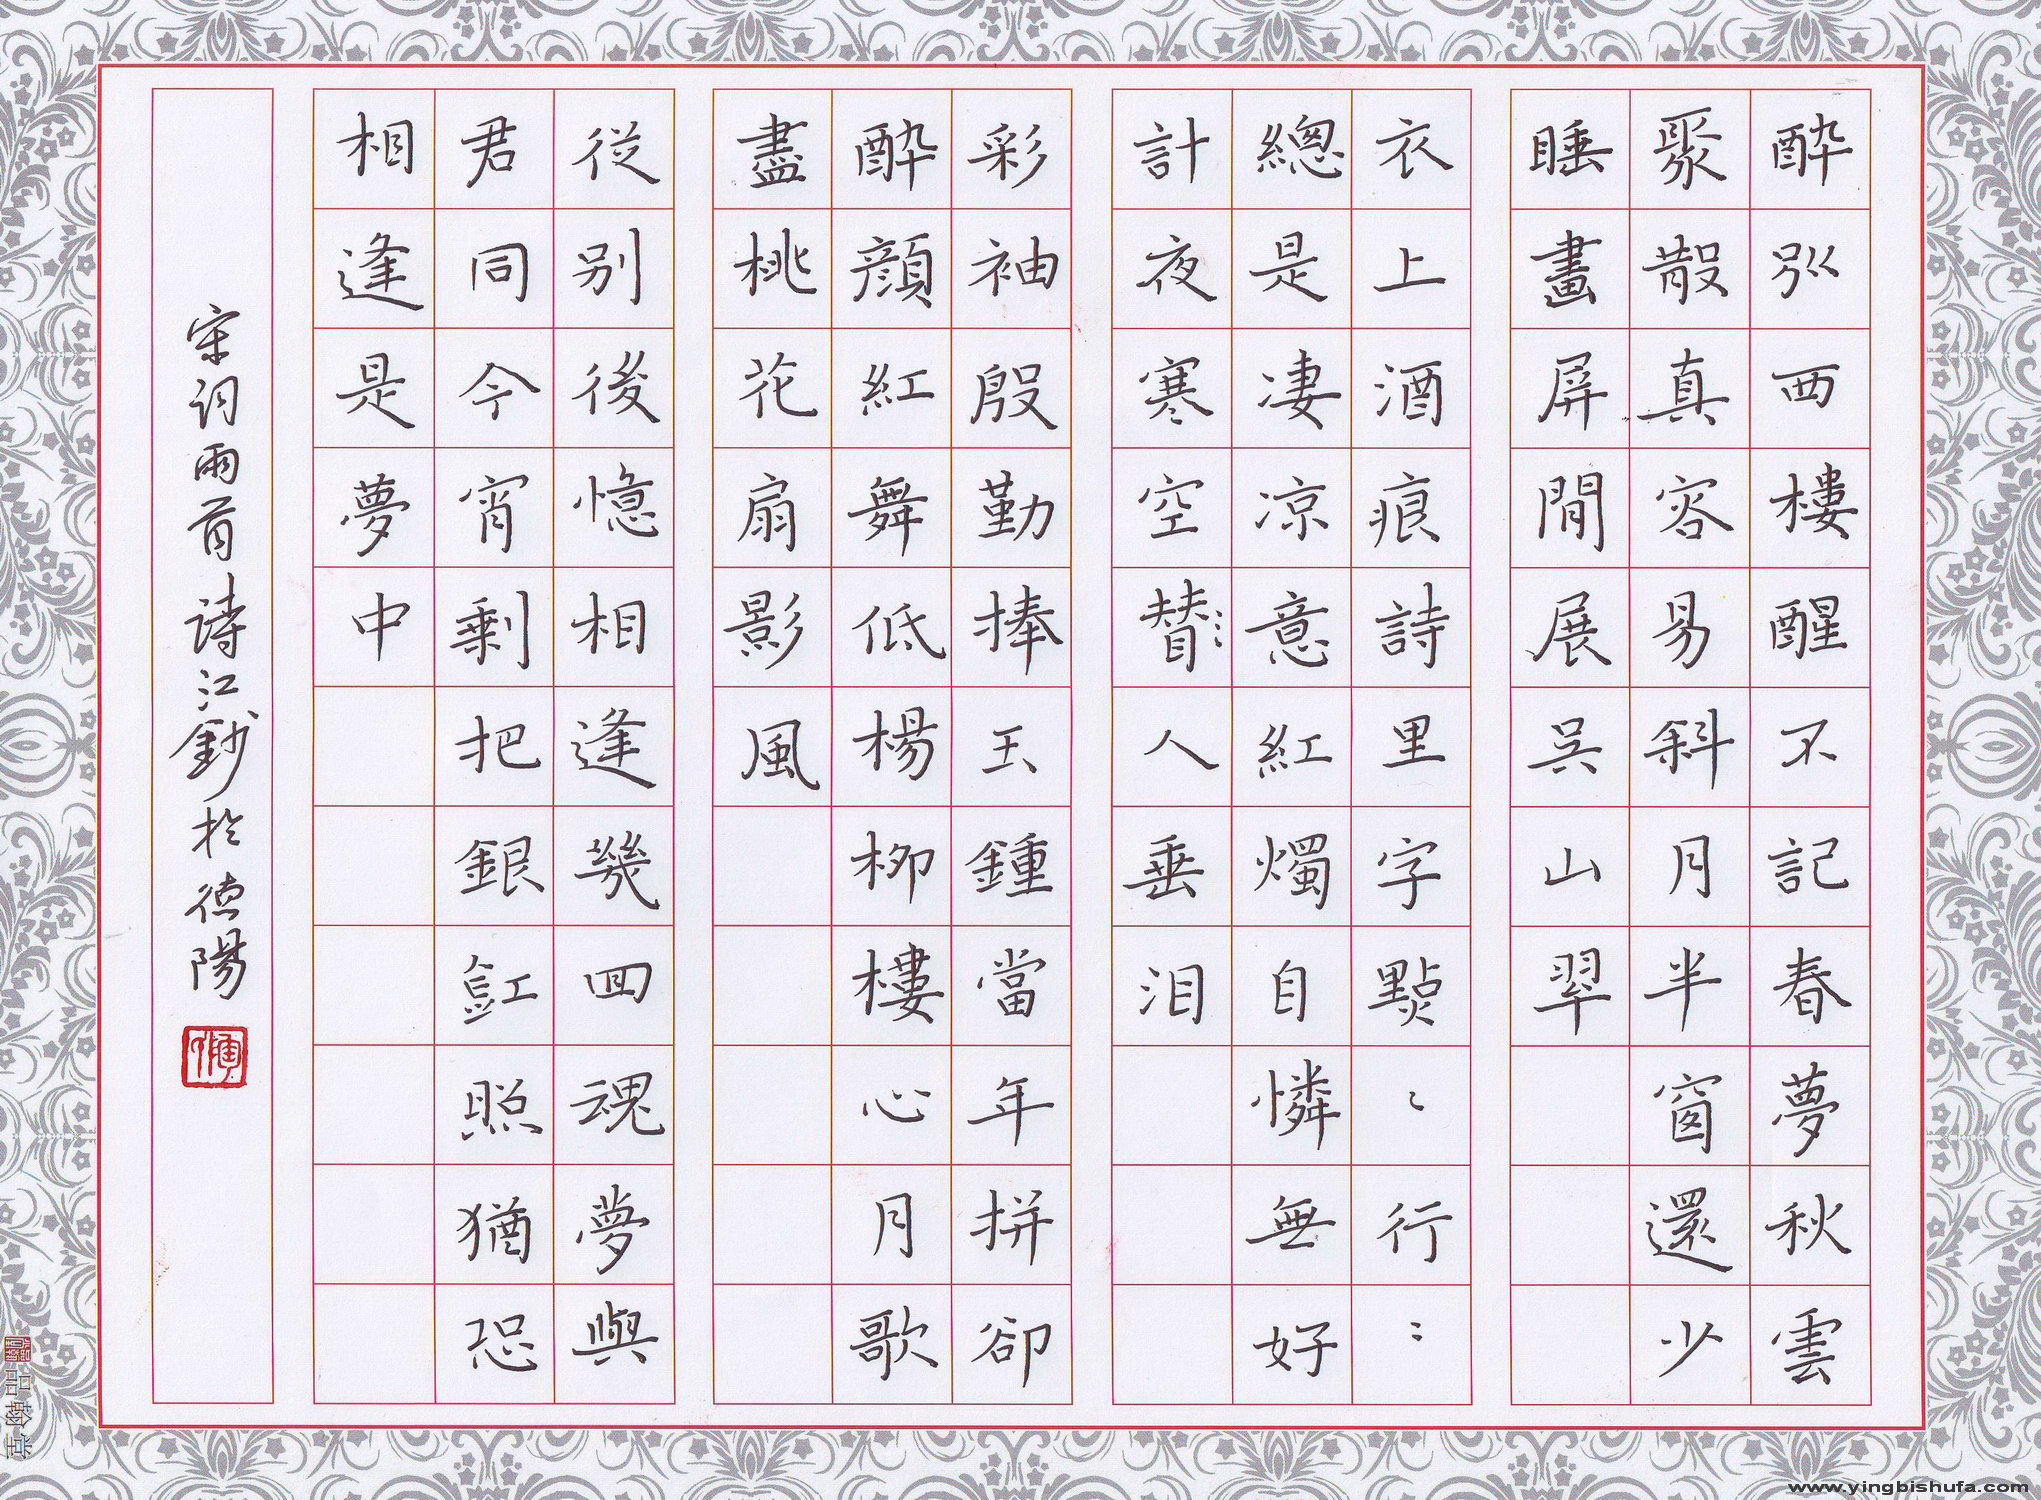 醉別西樓醒不記春夢秋雲
聚散真容易斜月半窗還少
睡畫屏閒展吳山翠
衣上酒痕詩里字點〻行〻
總是凄凉意紅燭自憐無好
計夜寒空替人垂泪
彩袖殷勤捧玉鍾當年拼卻
醉顏紅舞低楊柳樓心月歌
盡桃花扇影風
從别後憶相逢幾回魂夢與
君同今宵剩把銀釭照猶恐
相逢是夢中
宋詞兩首詩江鈔於德陽
品翰堂
www.yingbishufa.com